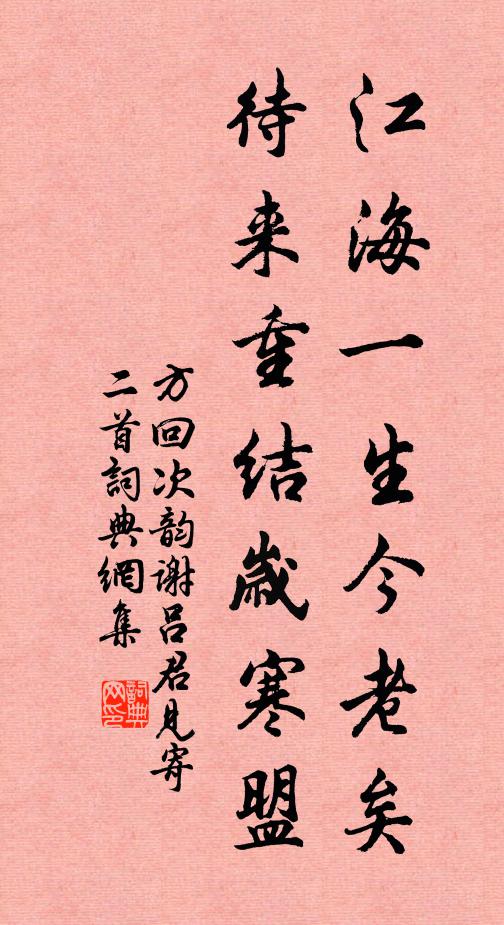 江海一生今老矣
待来重结歲寒盟
方回次韵谢吕君見寄
二首詞典網集
詞典
网印